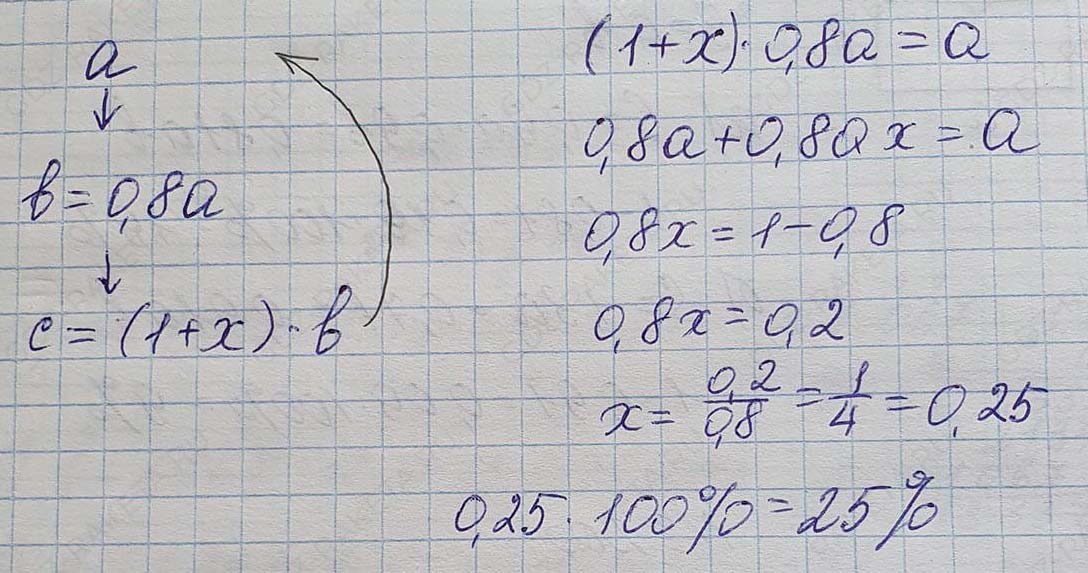 a
↓
b = 0,8a
↓
c = (1+x)·b
(1+x)·0,8a = a
0,8a+0,8a x = a
0,8x = 1-0,8
0,8x = 0,2
x = 0,2/0,8 = 1/4 = 0,25
0,25 · 100% = 25%